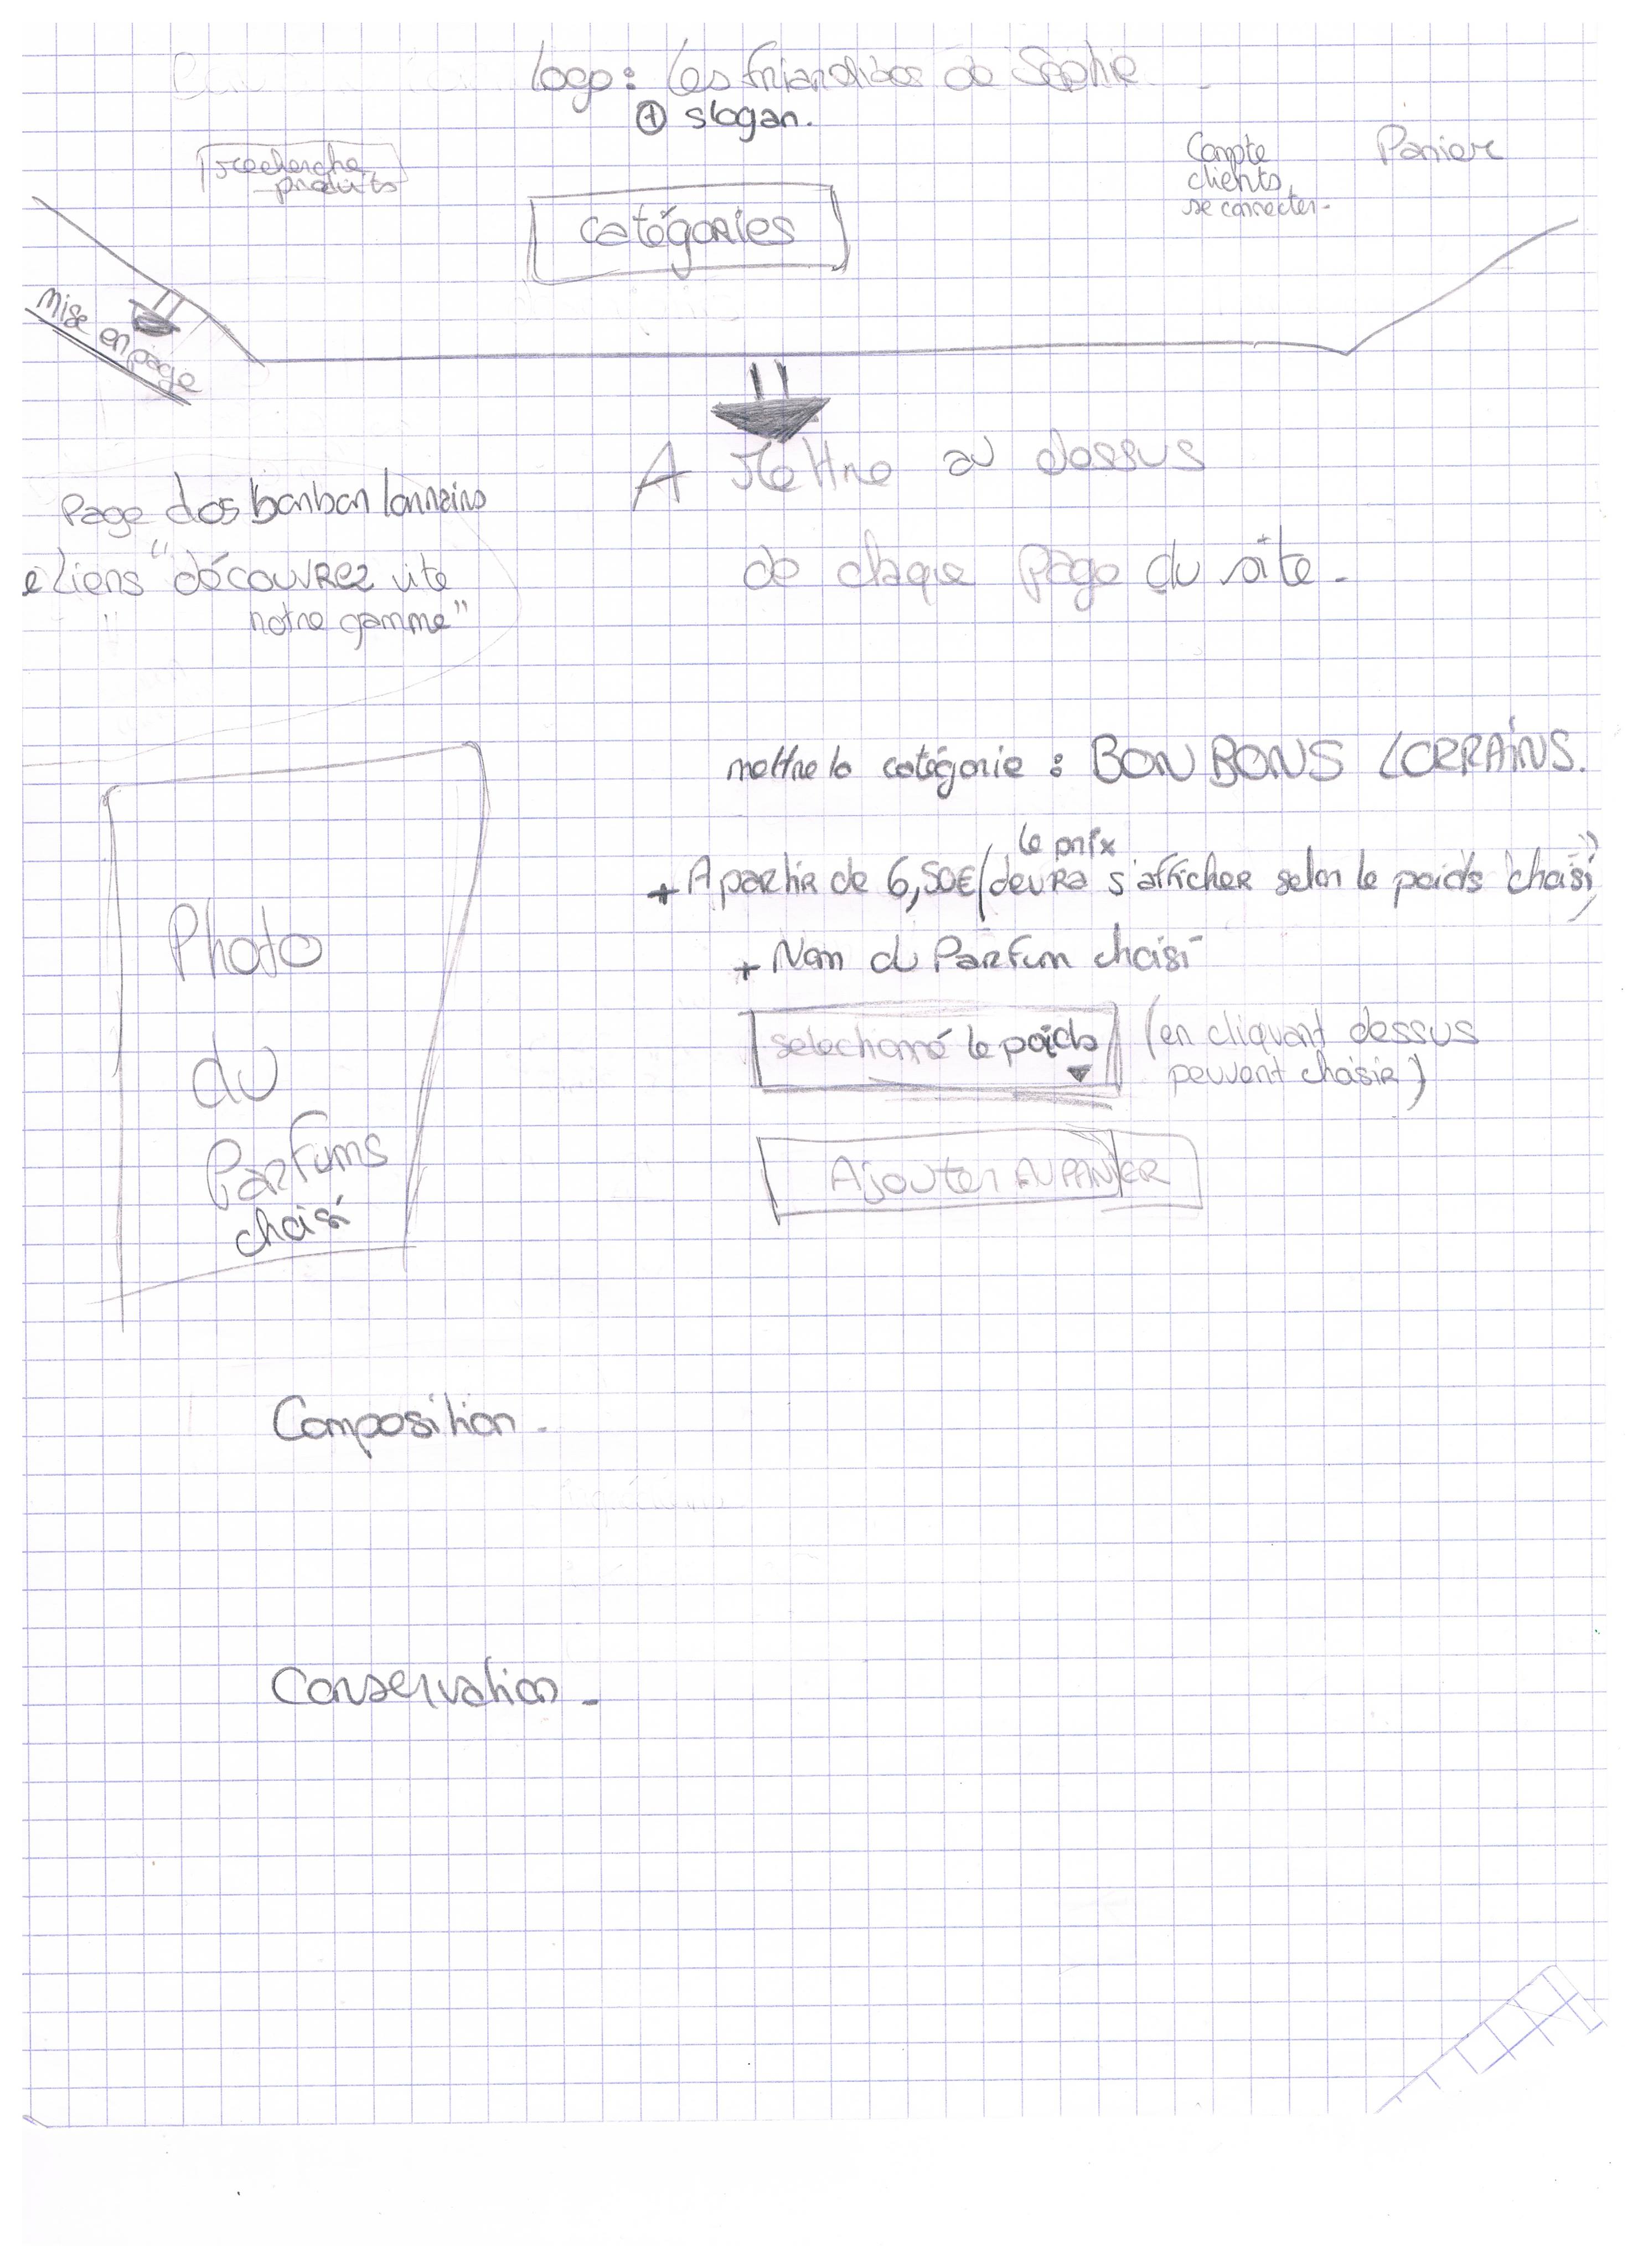 logo : Les friandises de Sophie
+ slogan.
recherche
produits
Compte
clients
se connecter-
Panier
catégories
Mise en page
A Mettre au dessus
de chaque page du site-
Page des bonbon lorrains
Liens "découvrez vite
notre gamme"
mettre la catégorie : BONBONS LORRAINS.
+ A partir de 6,50€ (le prix devra s'afficher selon le poids "choisi")
+ Nom du Parfum choisi
selectionné le poids
(en cliquant dessus
peuvent choisir)
Ajouter AU PANIER
Photo
du
Parfums
choisi
Composition -
Conservation -